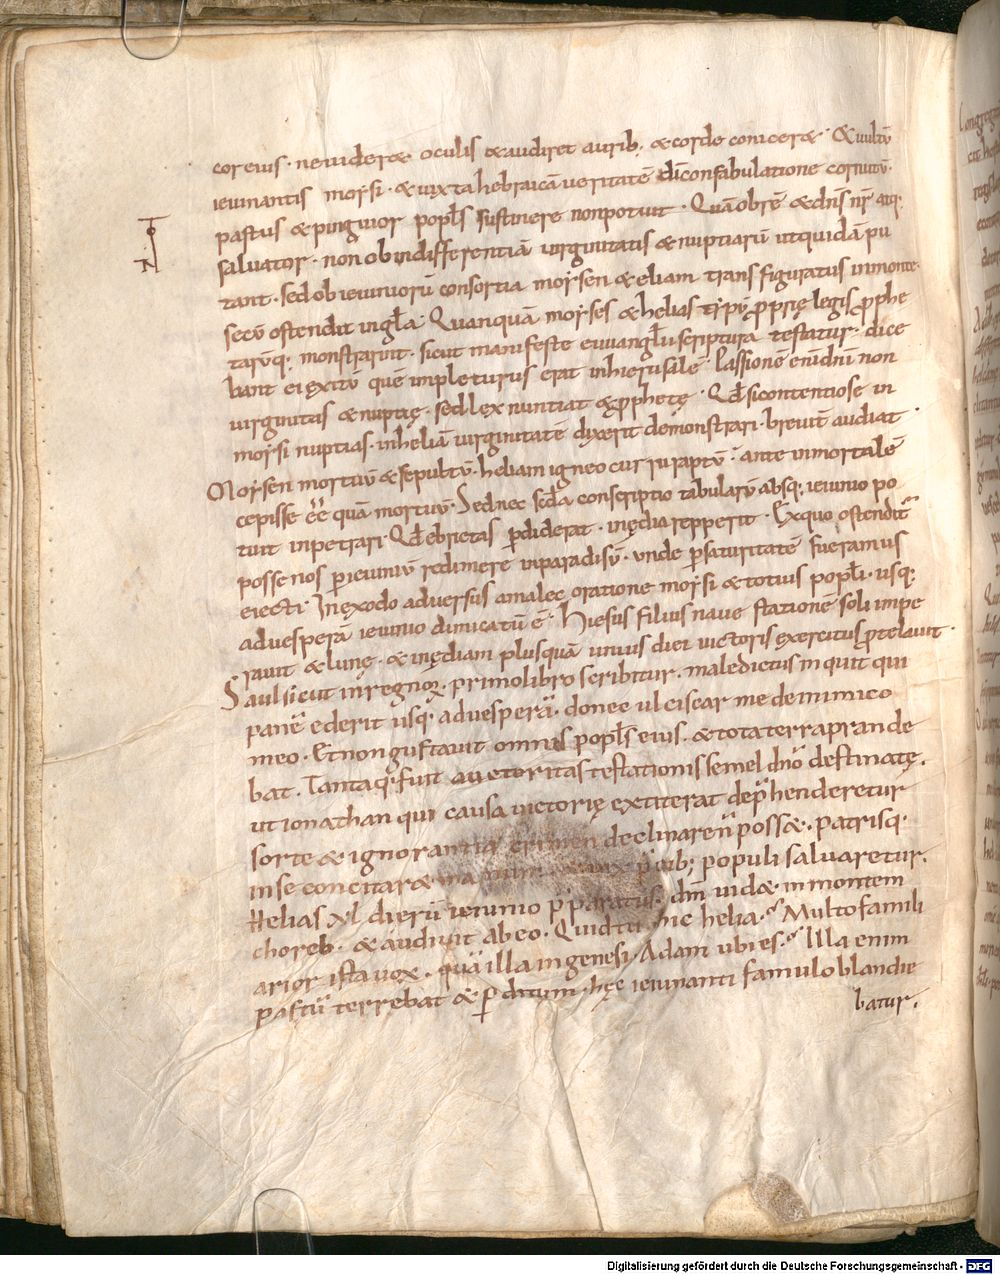 cor eius · ne uideret oculis & audiret aurib; & corde conicer& · & uultū
ieiunantis moysi · & iuxta hebraicā ueritatē dī confabulatione cornutū ·
pastus & pinguior popl̄s sustinere non potuit · Quā ob rē & dn̄s nr̄
saluator · non ob indifferentiā uirginitatis & nuptiarū ut quidā pu
tant · sed ob ieiuniorū consortia moysen & eliam transfiguratus in monte
secū ostendit in gl̄a · Quanquā moyses & helias typū proprię legis prophe
tarūq; monstrarint · sicut manifeste euuangl̄ii scriptura testatur · dice
bant ei exitū quē impleturus erat in hierusalē · Passionē eni dn̄i non
uirginitas & nuptię · sed lex nuntiat & prophetę · Qd̄ si contentiose in
moysi nuptias · in heliā uirginitatē dixerit demonstrari · breuit audiat ·
Moysen mortuū & sepultū · heliam igneo curru raptū · ante inmortalē
cepisse ēē quā mortuū · Sed nec sed̄a conscriptio tabularū absq; ieiunio po
tuit inpetrari · Qd̄ ebrietas pdiderat · inędia repperit · Ex quo ostenditr̄
posse nos p ieiuniū redimere in paradisū · unde p saturitatē fueramus
eiecti · In exodo aduersus amalec oratione moysi & totius popl̄i · usq;
ad uesperā ieiunio dimicatū ē · Hiesus filius naue stationē soli impe
rauit & lunę · & inędiam plusquā unius diei uictoris exercitus protelauit ·
Saul sicut in regnoꝝ · primo libro scribitur · maledictus inquit qui
panē ederit usq; ad uesperā · donec ulciscar me de inimico
meo · Et non gustauit omnis popl̄s eius · & tota terra prande
bat · Tantaq; fuit auctoritas testationis semel dn̄o destinatę ·
ut ionathan qui causa uictorię extiterat dephenderetur
sorte & ignorantiā crimen declinare n̄ poss& · patrisq;
in se concitar& manum · & uix pcib; populi saluaretur ·
Helias xl dierū ieiunio pparatus · dm̄ uid& in montem
choreb · & audiuit ab eo · Quid tu hic helia · Multo famili
arior ista uox · quā illa in genesi · Adam ubi es · Illa enim
pastū terrebat & pditum · hęc ieiunanti famulo blandie
batur ·